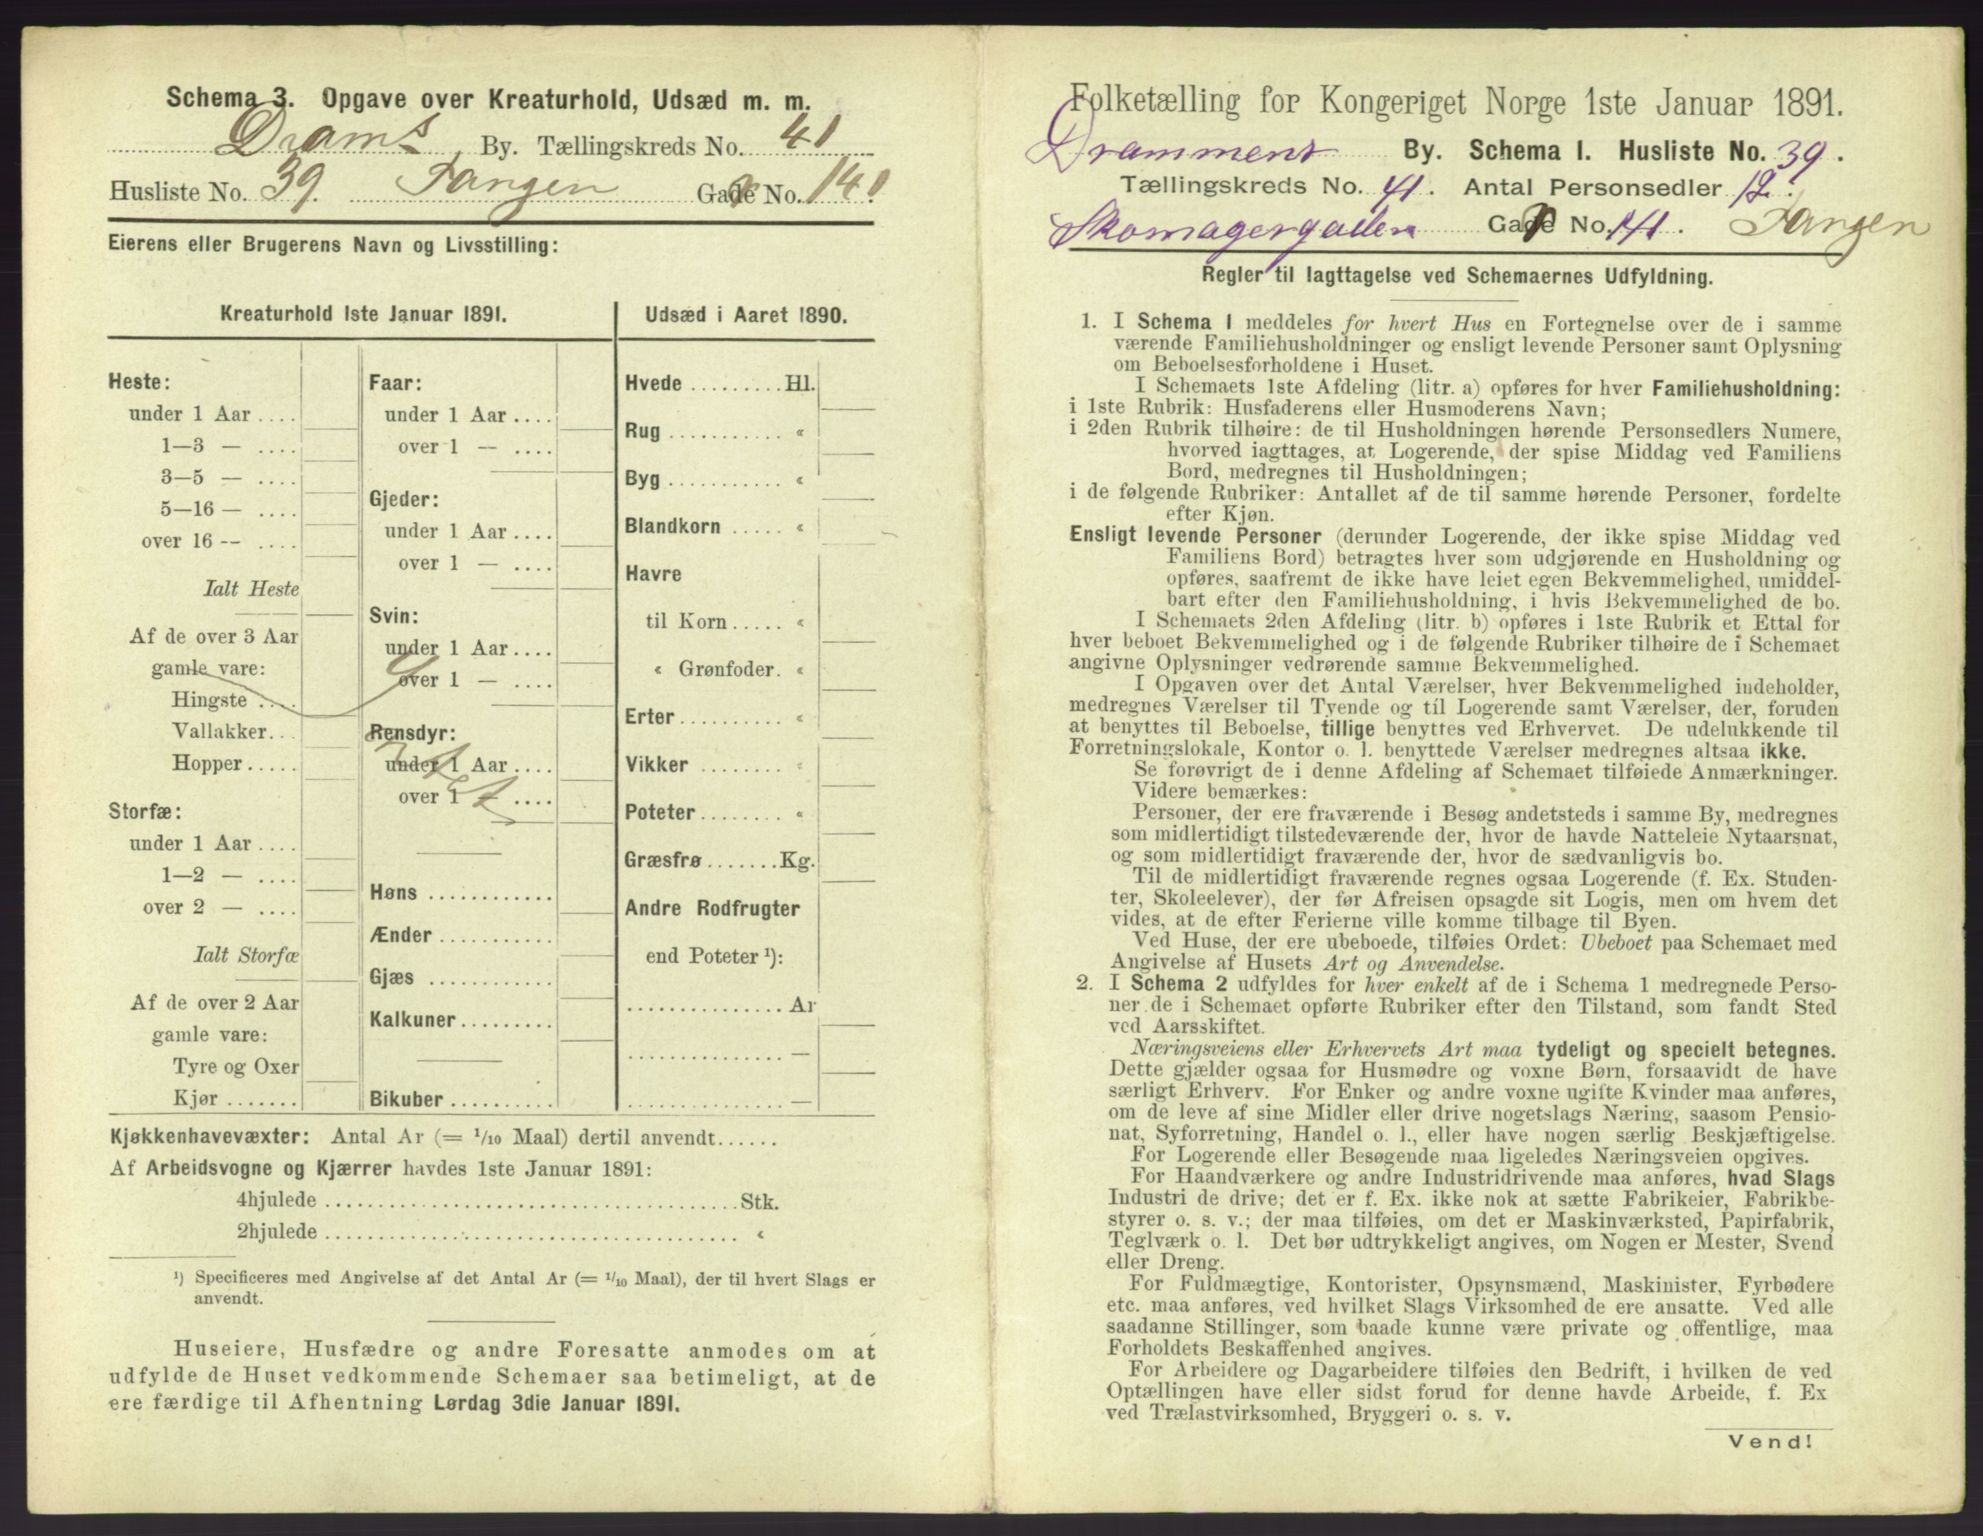 Schema 3. Opgave over Kreaturhold, Udsæd m. m.
Drams By. Tællingskreds No. 41
Husliste No. 39. Tangen Gade No. 141
Eierens eller Brugerens Navn og Livsstilling:
Kreaturhold 1ste Januar 1891.
Heste:
under 1 Aar ....
1—3 — ....
3—5 — ....
5—16 — ....
over 16 -- ....
Ialt Heste
Af de over 3 Aar
gamle vare:
Hingste ....
Vallakker...
Hopper .....
Storfæ:
under 1 Aar ....
1—2 — ....
over 2 — ....
Ialt Storfæ
Af de over 2 Aar
gamle vare:
Tyre og Oxer
Kjør .......
Faar:
under 1 Aar ....
over 1 — ....
Gjeder:
under 1 Aar ....
over 1 — ....
Svin:
under 1 Aar ....
over 1 — ....
Rensdyr:
under 1 Aar ....
over 1 — ....
Høns ............
Ænder ...........
Gjæs ............
Kalkuner.........
Bikuber ..........
Udsæd i Aaret 1890.
Hvede .........Hl.
Rug ........... «
Byg ........... «
Blandkorn ..... «
Havre
til Korn..... «
« Grønfoder. «
Erter.......... «
Vikker ........ «
Poteter........ «
Græsfrø .......Kg.
Andre Rodfrugter
end Poteter ¹):
............... Ar
............... —
............... —
Kjøkkenhavevæxter: Antal Ar (= 1/10 Maal) dertil anvendt......
Af Arbeidsvogne og Kjærrer havdes 1ste Januar 1891:
4hjulede ..................................... Stk.
2hjulede ..................................... «
¹) Specificeres med Angivelse af det Antal Ar (= 1/10 Maal), der til hvert Slags er
anvendt.
Huseiere, Husfædre og andre Foresatte anmodes om at
udfylde de Huset vedkommende Schemaer saa betimeligt, at de
ere færdige til Afhentning Lørdag 3die Januar 1891.
Folketælling for Kongeriget Norge 1ste Januar 1891.
Drammens By. Schema I. Husliste No. 39.
Tællingskreds No. 41. Antal Personsedler 12.
Skomagergaden Gade No. 141. Tangen
Regler til Iagttagelse ved Schemaernes Udfyldning.
1. I Schema 1 meddeles for hvert Hus en Fortegnelse over de i samme
værende Familiehusholdninger og ensligt levende Personer samt Oplysning
om Beboelsesforholdene i Huset.
I Schemaets 1ste Afdeling (litr. a) opføres for hver Familiehusholdning:
i 1ste Rubrik: Husfaderens eller Husmoderens Navn;
i 2den Rubrik tilhøire: de til Husholdningen hørende Personsedlers Numere,
hvorved iagttages, at Logerende, der spise Middag ved Familiens
Bord, medregnes til Husholdningen;
i de følgende Rubriker: Antallet af de til samme hørende Personer, fordelte
efter Kjøn.
Ensligt levende Personer (derunder Logerende, der ikke spise Middag ved
Familiens Bord) betragtes hver som udgjørende en Husholdning og
opføres, saafremt de ikke have leiet egen Bekvemmelighed, umiddel-
bart efter den Familiehusholdning, i hvis Bekvemmelighed de bo.
I Schemaets 2den Afdeling (litr. b) opføres i 1ste Rubrik et Ettal for
hver beboet Bekvemmelighed og i de følgende Rubriker tilhøire de i Schemaet
angivne Oplysninger vedrørende samme Bekvemmelighed.
I Opgaven over det Antal Værelser, hver Bekvemmelighed indeholder,
medregnes Værelser til Tyende og til Logerende samt Værelser, der, foruden
at benyttes til Beboelse, tillige benyttes ved Erhvervet. De udelukkende til
Forretningslokale, Kontor o. l. benyttede Værelser medregnes altsaa ikke.
Se forøvrigt de i denne Afdeling af Schemaet tilføiede Anmærkninger.
Videre bemærkes:
Personer, der ere fraværende i Besøg andetsteds i samme By, medregnes
som midlertidigt tilstedeværende der, hvor de havde Natteleie Nytaarsnat,
og som midlertidigt fraværende der, hvor de sædvanligvis bo.
Til de midlertidigt fraværende regnes ogsaa Logerende (f. Ex. Studen-
ter, Skoleelever), der før Afreisen opsagde sit Logis, men om hvem det
vides, at de efter Ferierne ville komme tilbage til Byen.
Ved Huse, der ere ubeboede, tilføies Ordet: Ubeboet paa Schemaet med
Angivelse af Husets Art og Anvendelse.
2. I Schema 2 udfyldes for hver enkelt af de i Schema 1 medregnede Perso-
ner de i Schemaet opførte Rubriker efter den Tilstand, som fandt Sted
ved Aarsskiftet.
Næringsveiens eller Erhvervets Art maa tydeligt og specielt betegnes.
Dette gjælder ogsaa for Husmødre og voxne Børn, forsaavidt de have
særligt Erhverv. For Enker og andre voxne ugifte Kvinder maa anføres,
om de leve af sine Midler eller drive nogetslags Næring, saasom Pensio-
nat, Syforretning, Handel o. l., eller have nogen særlig Beskjæftigelse.
For Logerende eller Besøgende maa ligeledes Næringsveien opgives.
For Haandværkere og andre Industridrivende maa anføres, hvad Slags
Industri de drive; det er f. Ex. ikke nok at sætte Fabrikeier, Fabrikbe-
styrer o. s. v.; der maa tilføies, om det er Maskinværksted, Papirfabrik,
Teglværk o. l. Det bør udtrykkeligt angives, om Nogen er Mester, Svend
eller Dreng.
For Fuldmægtige, Kontorister, Opsynsmænd, Maskinister, Fyrbødere
etc. maa anføres, ved hvilket Slags Virksomhed de ere ansatte. Ved alle
saadanne Stillinger, som baade kunne være private og offentlige, maa
Forholdets Beskaffenhed angives.
For Arbeidere og Dagarbeidere tilføies den Bedrift, i hvilken de ved
Optællingen have eller sidst forud for denne havde Arbeide, f. Ex
ved Trælastvirksomhed, Bryggeri o. s. v.
Vend!